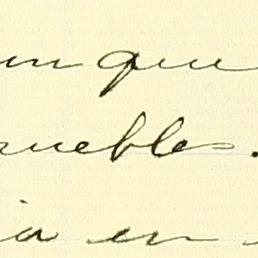 un que
muebles.
ia en